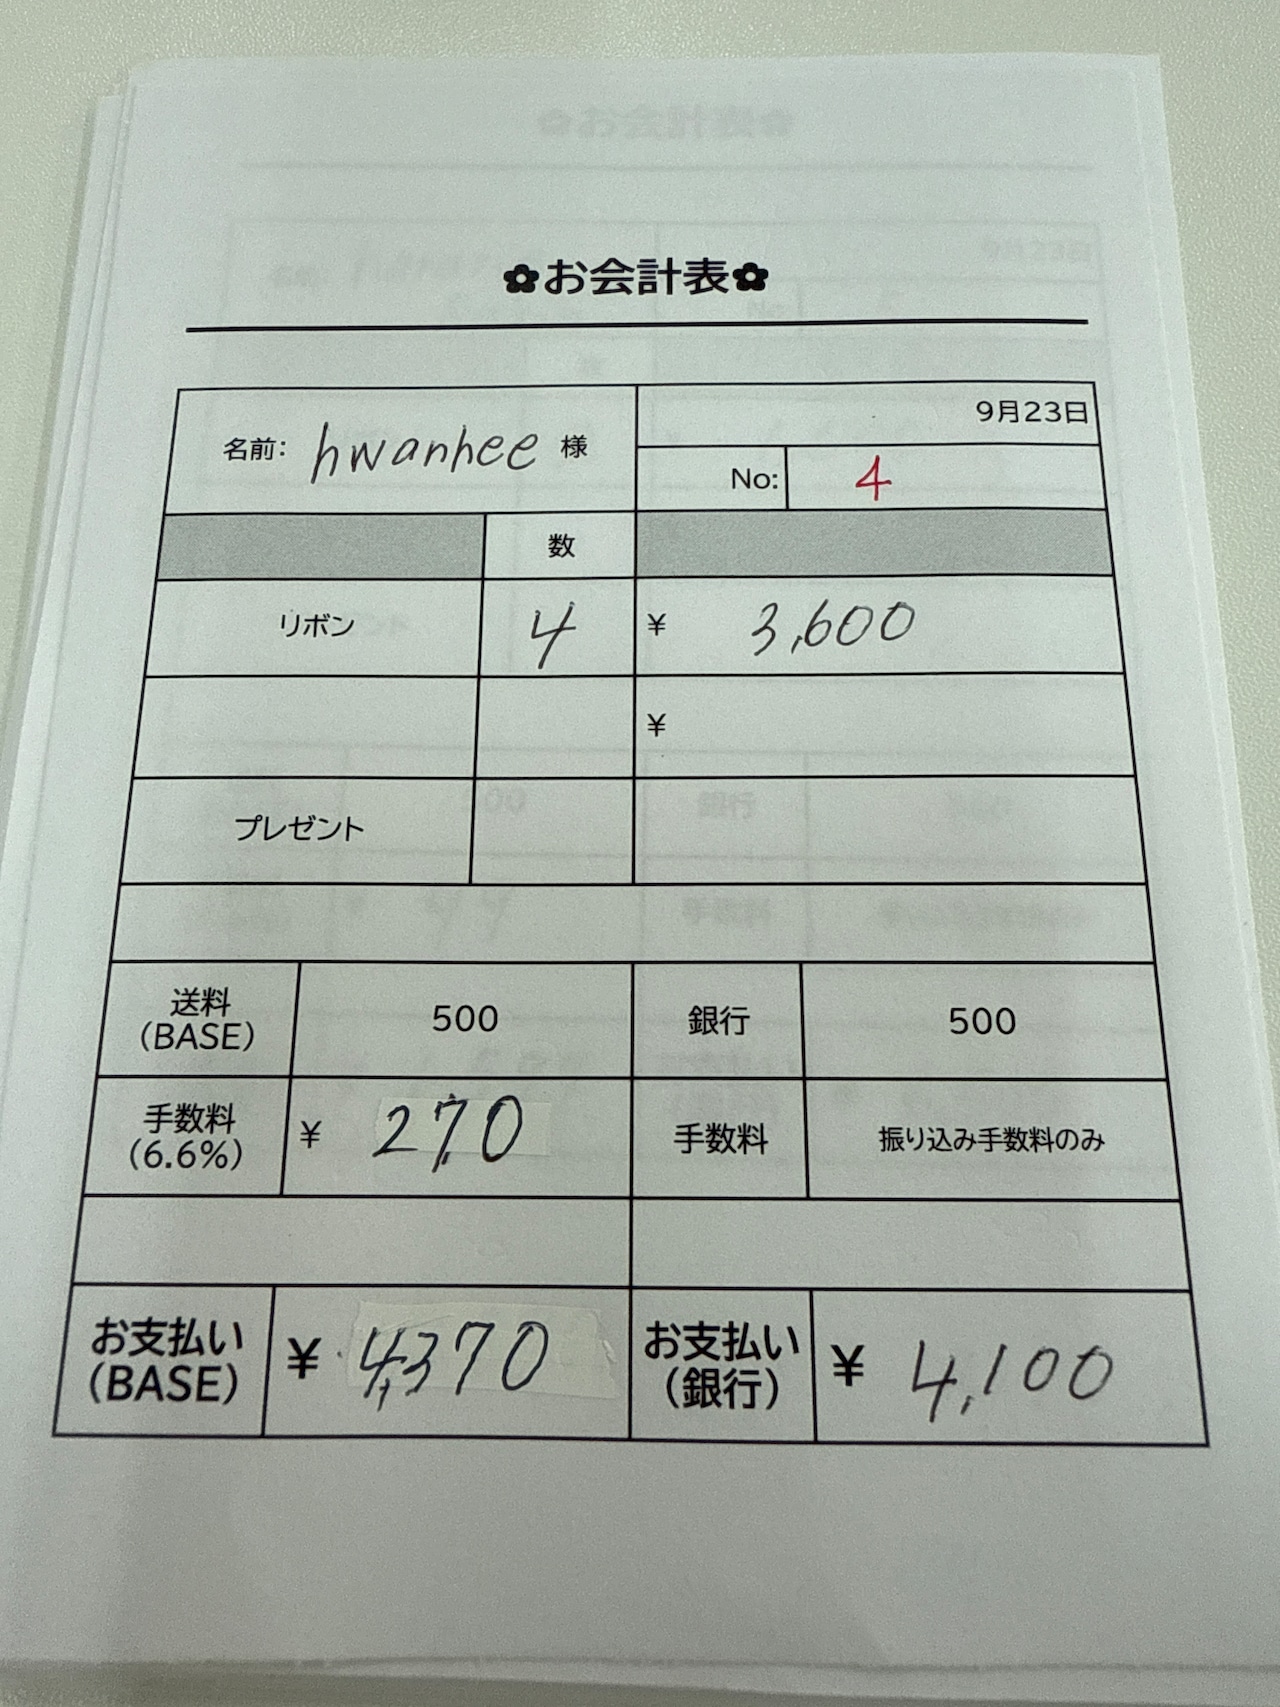 ✿お会計表✿
9月23日
名前: hwanhee 様
No: 4
数
リボン 4 ¥ 3,600
¥
プレゼント
送料 (BASE) 500 銀行 500
手数料 (6.6%) ¥ 270 手数料 振り込み手数料のみ
お支払い (BASE) ¥ 4,370 お支払い (銀行) ¥ 4,100